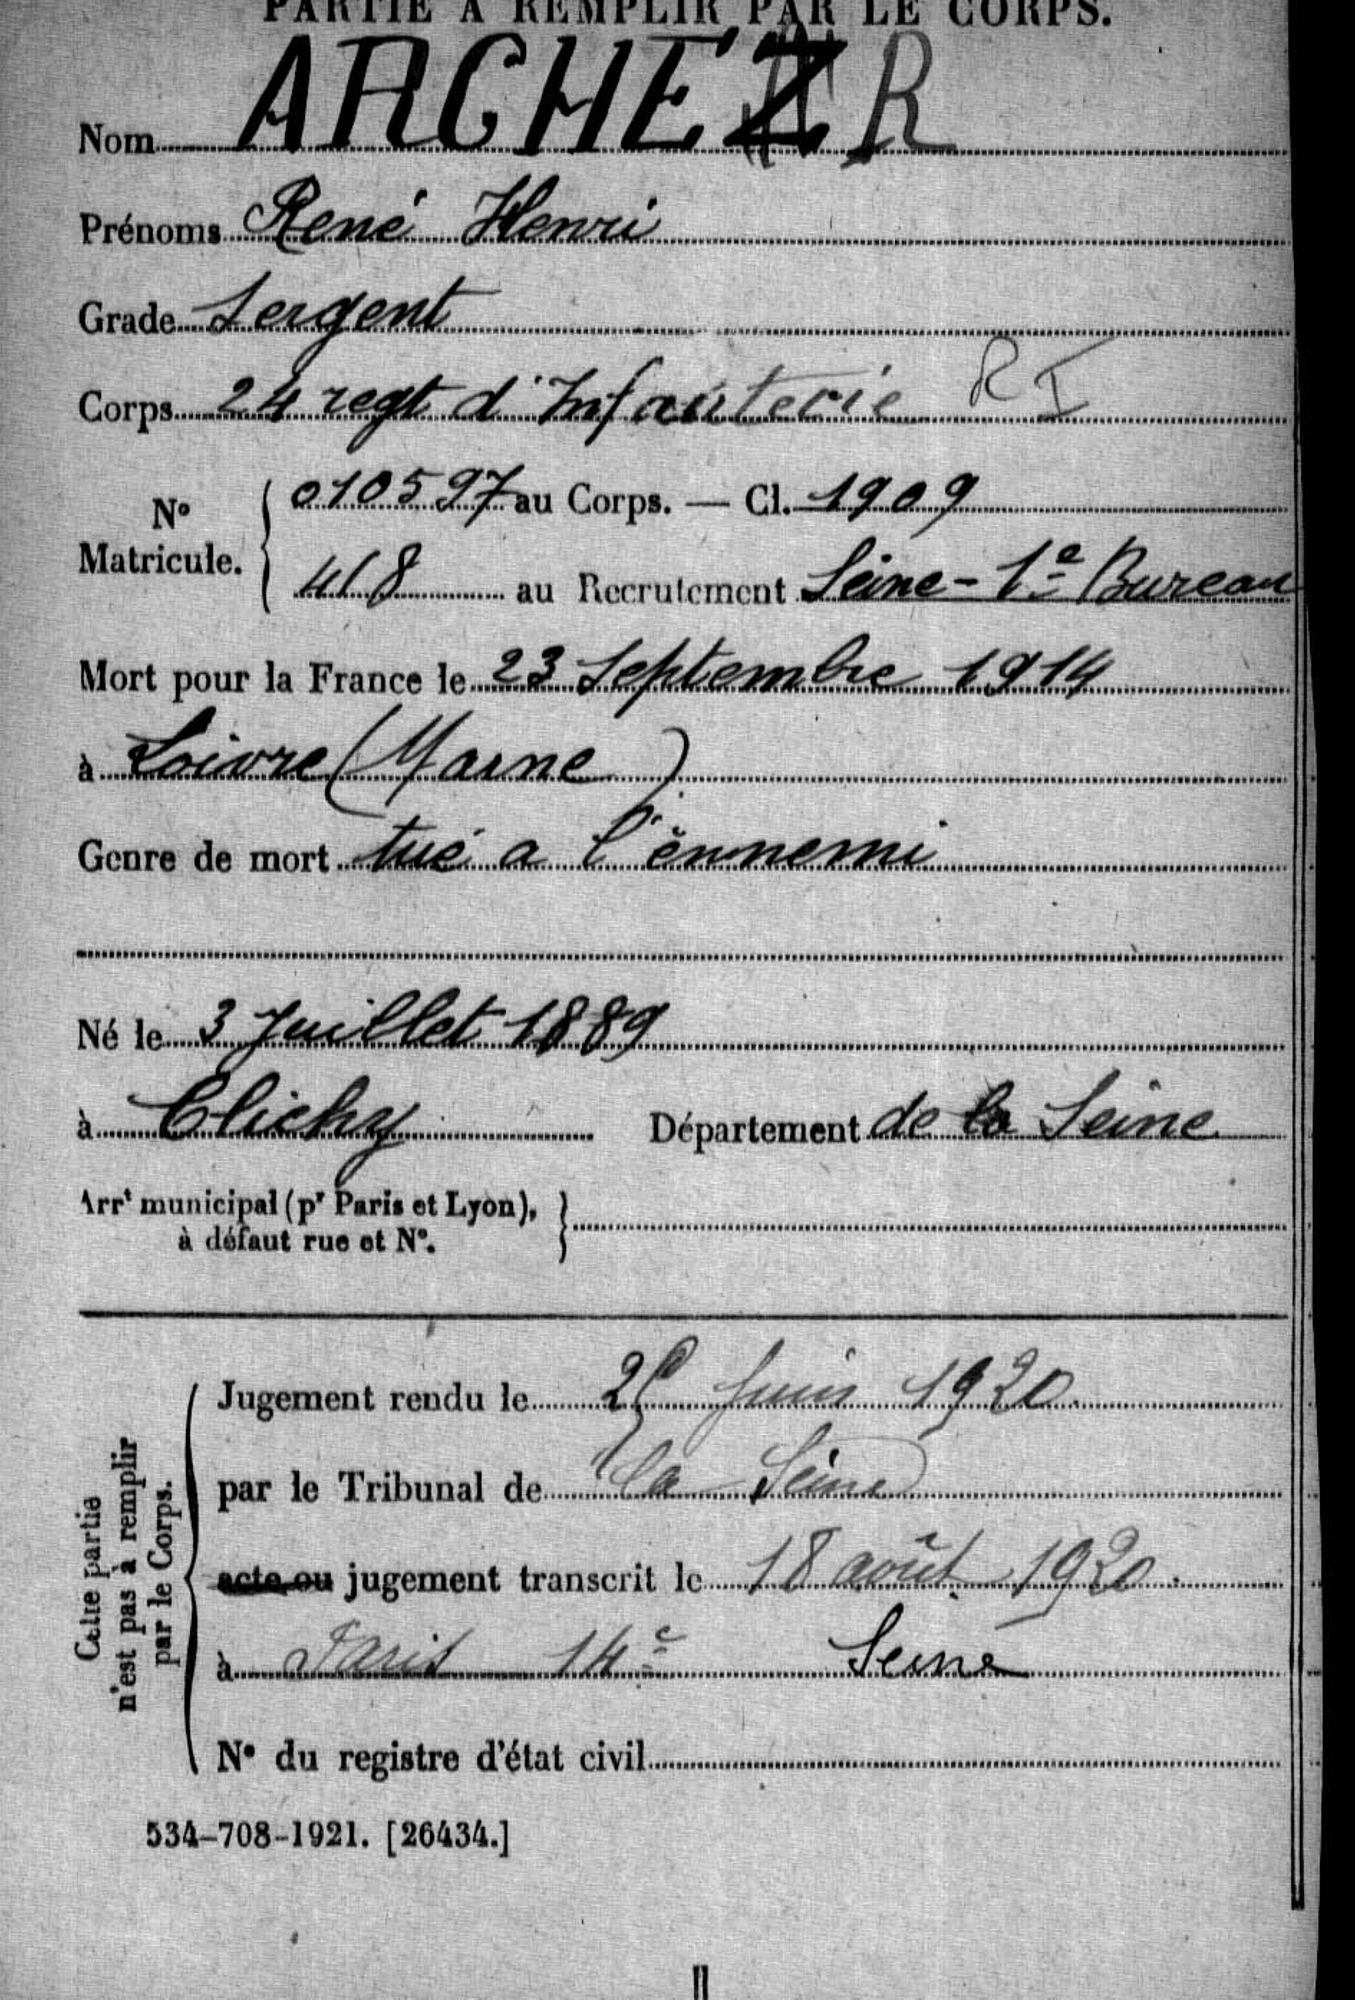 PARTIE À REMPLIR PAR LE CORPS.
Nom ARCHEZ R
Prénoms René Henri
Grade Sergent
Corps 24 regt d'Infanterie R I
N° Matricule. { 010597 au Corps. — Cl. 1909
418 au Recrutement Seine - 1e Bureau
Mort pour la France le 23 Septembre 1914
à Loivre (Marne)
Genre de mort tué a l'ennemi
Né le 3 Juillet 1889
à Clichy Département de la Seine
Arrt municipal (pr Paris et Lyon), à défaut rue et N°. }
Cette partie n'est pas à remplir par le Corps.
Jugement rendu le 25 Juin 1920
par le Tribunal de la Seine
acte ou jugement transcrit le 18 août 1920.
à Paris 14e Seine
N° du registre d'état civil
534-708-1921. [26434.]